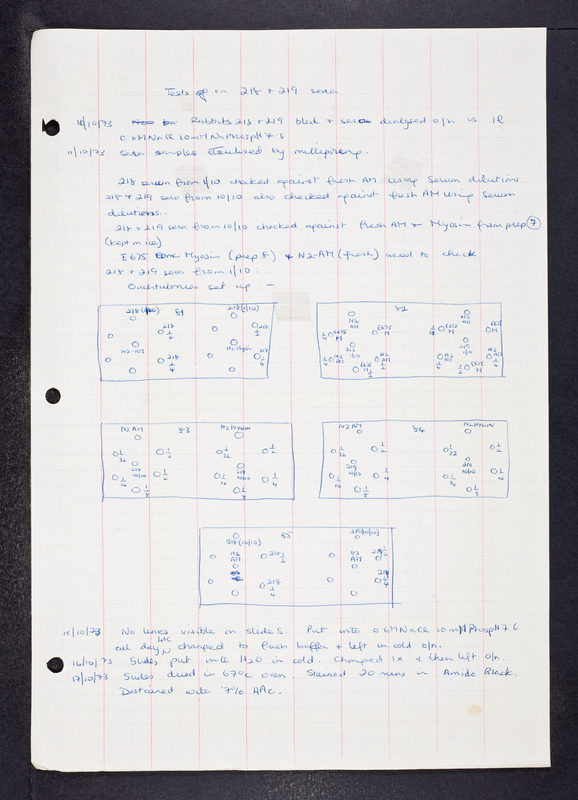 Tests on 218 + 219 sera
10/10/73 Rabbits 218 + 219 bled + sera dialysed o/n vs 1l
0.6M NaCl 10mM NaPhosph 7.6
11/10/73 Sera samples sterilised by millipring.
218 serum from 1/10 checked against fresh AM using Serum dilutions.
218 + 219 sera from 10/10 also checked against fresh AM using Serum
dilutions.
218 + 219 sera from 10/10 checked against fresh AM + Myosin from prep 7
(kept on ice)
E675 Myosin (prep 8) + N2-AM (fresh) used to check
218 + 219 sera from 1/10.
Ouchtalonies set up :-
218 (1/10) 81 218 (1/10)
218 1/2 219 1/2
N2-AM N2 Myosin
218 1/4 219 1/4
82
N2 AM N2 AM
1/4 E675 M E675 M 1/4 E675 M E675 M
218 1/10 219 1/10
1/4 N2 AM N2 AM 1/2 N2 AM N2 AM 1/2
E675 M 1/2 E675 M
N2 AM 83 N2 Myosin
1/32 1/2 1/32 1/2
218 10/10 218 10/10
1/16 1/4 1/16 1/4
1/8 1/8
N2 AM 84 N2 Myosin
1/32 1/2 1/32 1/2
219 10/10 219 10/10
1/16 1/4 1/16 1/4
1/8 1/8
218 (10/10) 85 219 (10/10)
N2 AM 218 1/2 N2 AM 219 1/2
218 1/4 219 1/4
15/10/73 No lines visible on slides Put into 0.6M NaCl 10mM Phosph 7.6
all day 4°C changed to fresh buffer + left in cold o/n.
16/10/73 Slides put into H2O in cold. Changed 1x + then left o/n.
17/10/73 Slides dried in 67°C oven. Stained 20 mins in Amido Black.
Destained with 7% HAc.